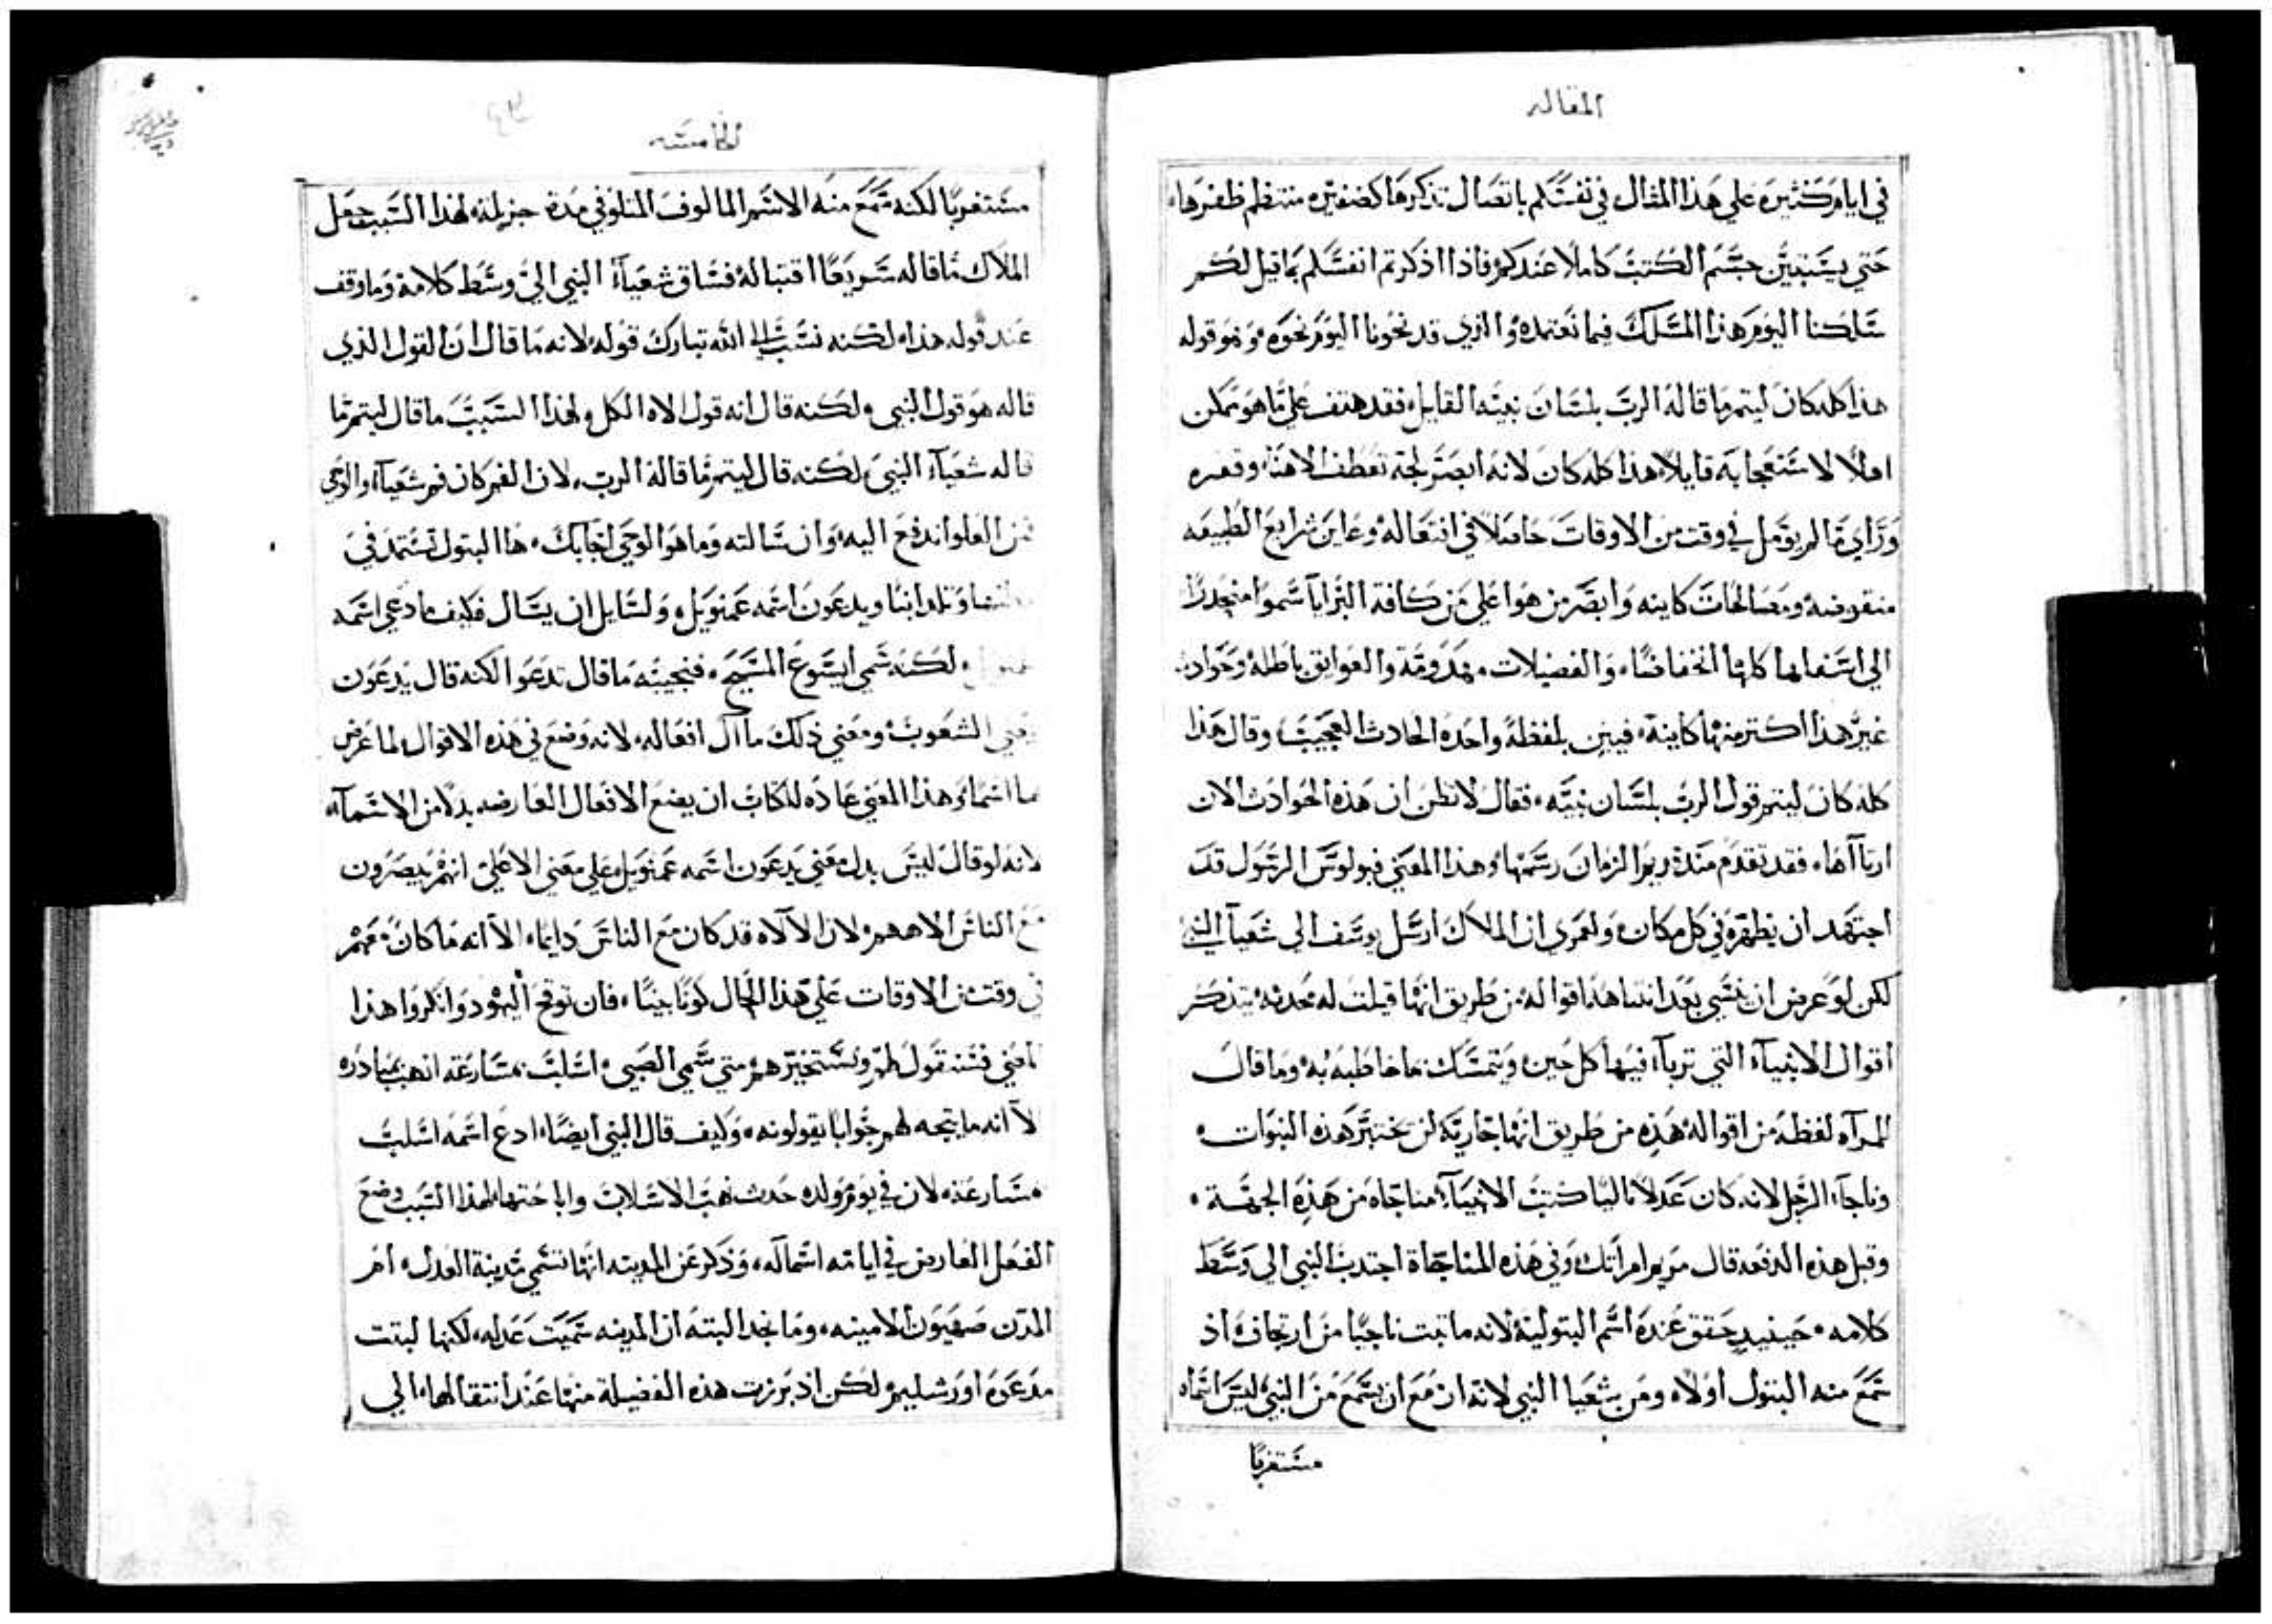 المقاله
في ايام كثيره علي هذا المثال في نفسكم باتصال تذكرها كضفيره منتظم ظفرها
حتي يستبين جسم الكتب كاملا عندكم فاذا اذكرتم انفسكم بما قيل لكم
سلكنا اليوم هذا المسلك فيما نعتمده والذي قد نحونا اليوم نحوه وهو قوله
هذا كله كان ليتم ما قاله الرب بلسان نبيه القايل فقد هتف علي ما هو ممكن
املا لاستعجابه قايلا هذا كله كان لانه ابصر لجة تعطف الاهنا وقعره
وراي ما لم يؤمل في وقت من الاوقات حاصلا في افتعاله وعاين شرايع الطبيعه
منقوضه ومصالحات كاينه وابصر من هو اعلي من كافة البرايا سموا منحدرا
الي اسفلها كلها انخفاضا، والفضيلات مهدومة والعوايق باطله وحوادث
غير هذا اكتر منها كاينة فبين بلفظة واحده الحادث العجيب وقال هذا
كله كان ليتم قول الرب بلسان نبيه فقال لا تظن ان هذه الحوادث الان
ارتاآها، فقد تقدم منذ قديم الزمان رسمها وهذا المعني فبولوس الرسول قد
اجتهد ان يظهره في كل مكان ولعمري ان الملاك ارسل يوسف الي شعيآ النبي
لكن لو عرض ان ينسي بعد انتباهه اقواله من طريق انها قيلت له محدثه يتذكر
اقوال الانبيآء التي تربآ فيها كل حين ويتمسك بما خاطبه به وما قال
للمرآه لفظه من اقواله هذه من طريق انها جاريه لن تختبر هذه النبوات
وناجآ الرجل لانه كان عدلا تاليا كتب الانبيآء مناجاه من هذه الجهة
وقبل هذه الدفعه قال مريم امراتك وفي هذه المناجاة اجتدب النبي الي وسط
كلامه حينيد حقق عنده اسم البتولية لانه ما تبت ناجيا من ارتجاف اذ
سمع منه البتول اولا ومن شعيا النبي لانه ازمع ان يسمع من النبي ليس اسما
مستغربا
الخامسه
مستغربا لكنه سمع منه الاسم المالوف المتلو في مدة جزيلة لهذا السبب جعل
الملاك ما قاله سريعا اقتباله فساق شعيآء النبي الي وسط كلامه وما وقف
عند قوله هذا لكنه نسب الي الله تبارك قوله لانه ما قال ان القول الذي
قاله هو قول النبي ولكنه قال انه قول الاه الكل ولهذا السبب ما قال ليتم ما
قاله شعيآء النبي لكنه قال ليتم ما قاله الرب، لان الفم كان فم شعيآء والوحي
من العلو اندفع اليه وان سالته وما هو الوحي لجابك، ها البتول تشتمل في
وتلد ابنا ويدعون اسمه عمنويل ولسايل ان يسال فكيف ما دعي اسمه
لكنه سمي ايسوع المسيح فنجيبه ما قال تدعوا لكنه قال يدعون
يعني الشعوب ومعني ذلك مآل افعاله لانه وضع في هذه الاقوال لما عرض
اسماء وهذا المعني عاده للكتاب ان يضع الافعال العارضه بدلا من الاسمآء
لانه لو قال ليس يدل معني يدعون اسمه عمنويل علي معني الا علي انهم يبصرون
مع الناس الاههم لان الآلاه قد كان مع الناس دايما، الا انه ما كان معهم
في وقت من الاوقات علي هذا الحال كونا بينا، فان توقح اليهود وانكروا هذا
المعني فسنقول لهم ونستخبرهم متي سمي الصبي اسلب مسارعة انهب مبادره
لآ انه ما يتجه لهم جوابا يقولونه، وكيف قال النبي ايضا ادع اسمه اسلب
مسارعة لان في يوم ولده حدث نهب الاسلاب واباحتها لهذا السبب وضع
الفعل العارض في ايامه اسما له، وذكر عن المدينه انها تسمي مدينة العدل ام
المدن صهيون الامينه، وما نجد البته ان المدينه سميت عدله لكنها لبتت
مدعوه اورشليم لكن اذ برزت هذه الفضيلة منها عند انتقالها الي